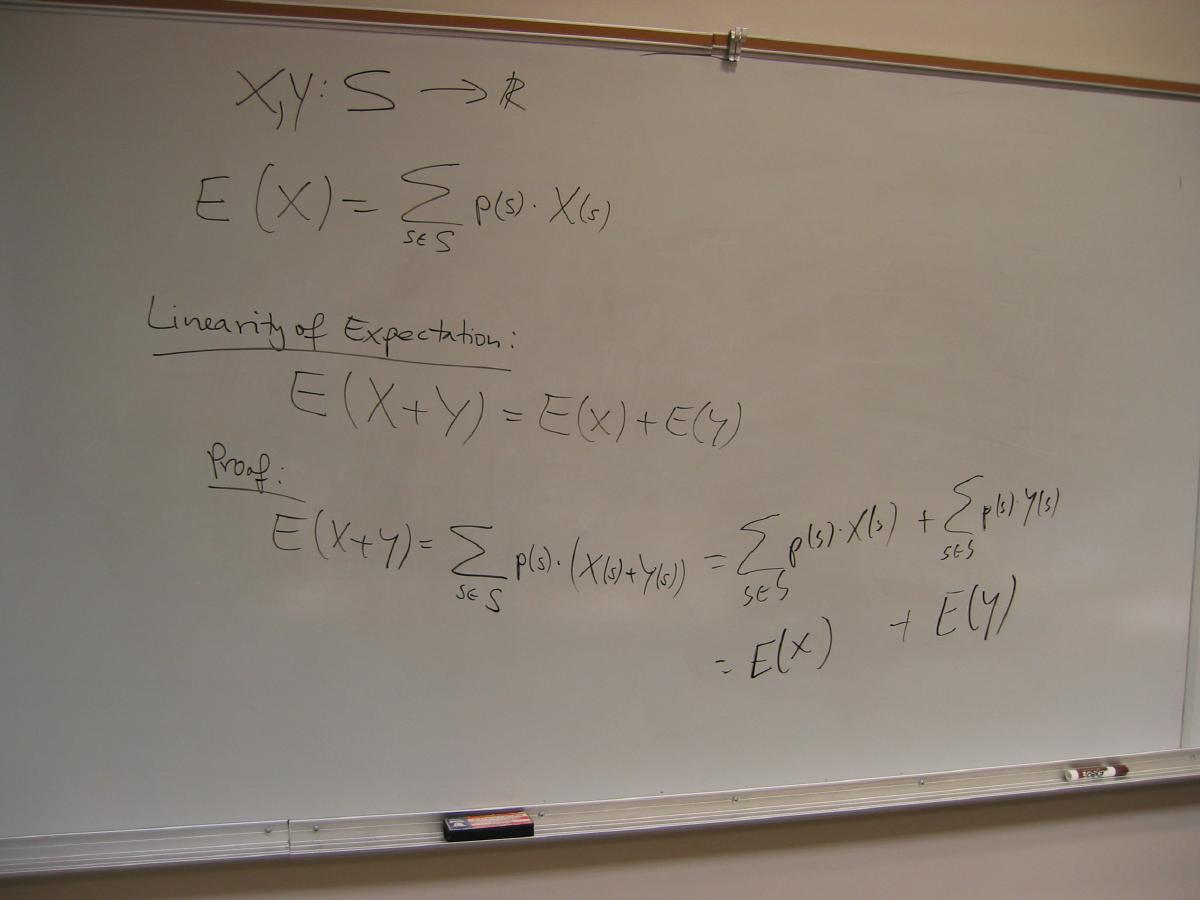 X,Y: S → ℝ
E(X) = ∑_{s∈S} p(s) · X(s)
Linearity of Expectation:
E(X+Y) = E(X) + E(Y)
Proof:
E(X+Y) = ∑_{s∈S} p(s) · (X(s)+Y(s)) = ∑_{s∈S} p(s) · X(s) + ∑_{s∈S} p(s) · Y(s)
= E(X) + E(Y)